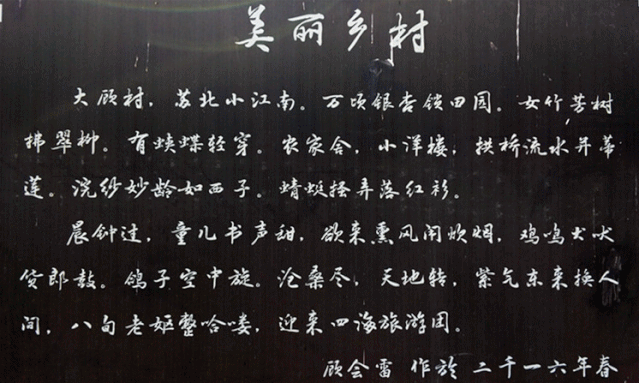 美丽乡村
大顾村，苏北小江南。万顷银杏锁田园。女竹芳树
拂翠柳。有蛱蝶轻穿。农家舍，小洋楼，拱桥流水并蒂
莲。浣纱妙龄如西子。蜻蜓搔弄落红衫。
晨钟过，童儿书声甜，欲来熏风闲炊烟，鸡鸣犬吠
货郎鼓。鸽子空中旋。沧桑尽，天地转，紫气东来换人
间，八旬老妪整哈喽，迎来四海旅游团。
顾会雷 作於 二千一六年春